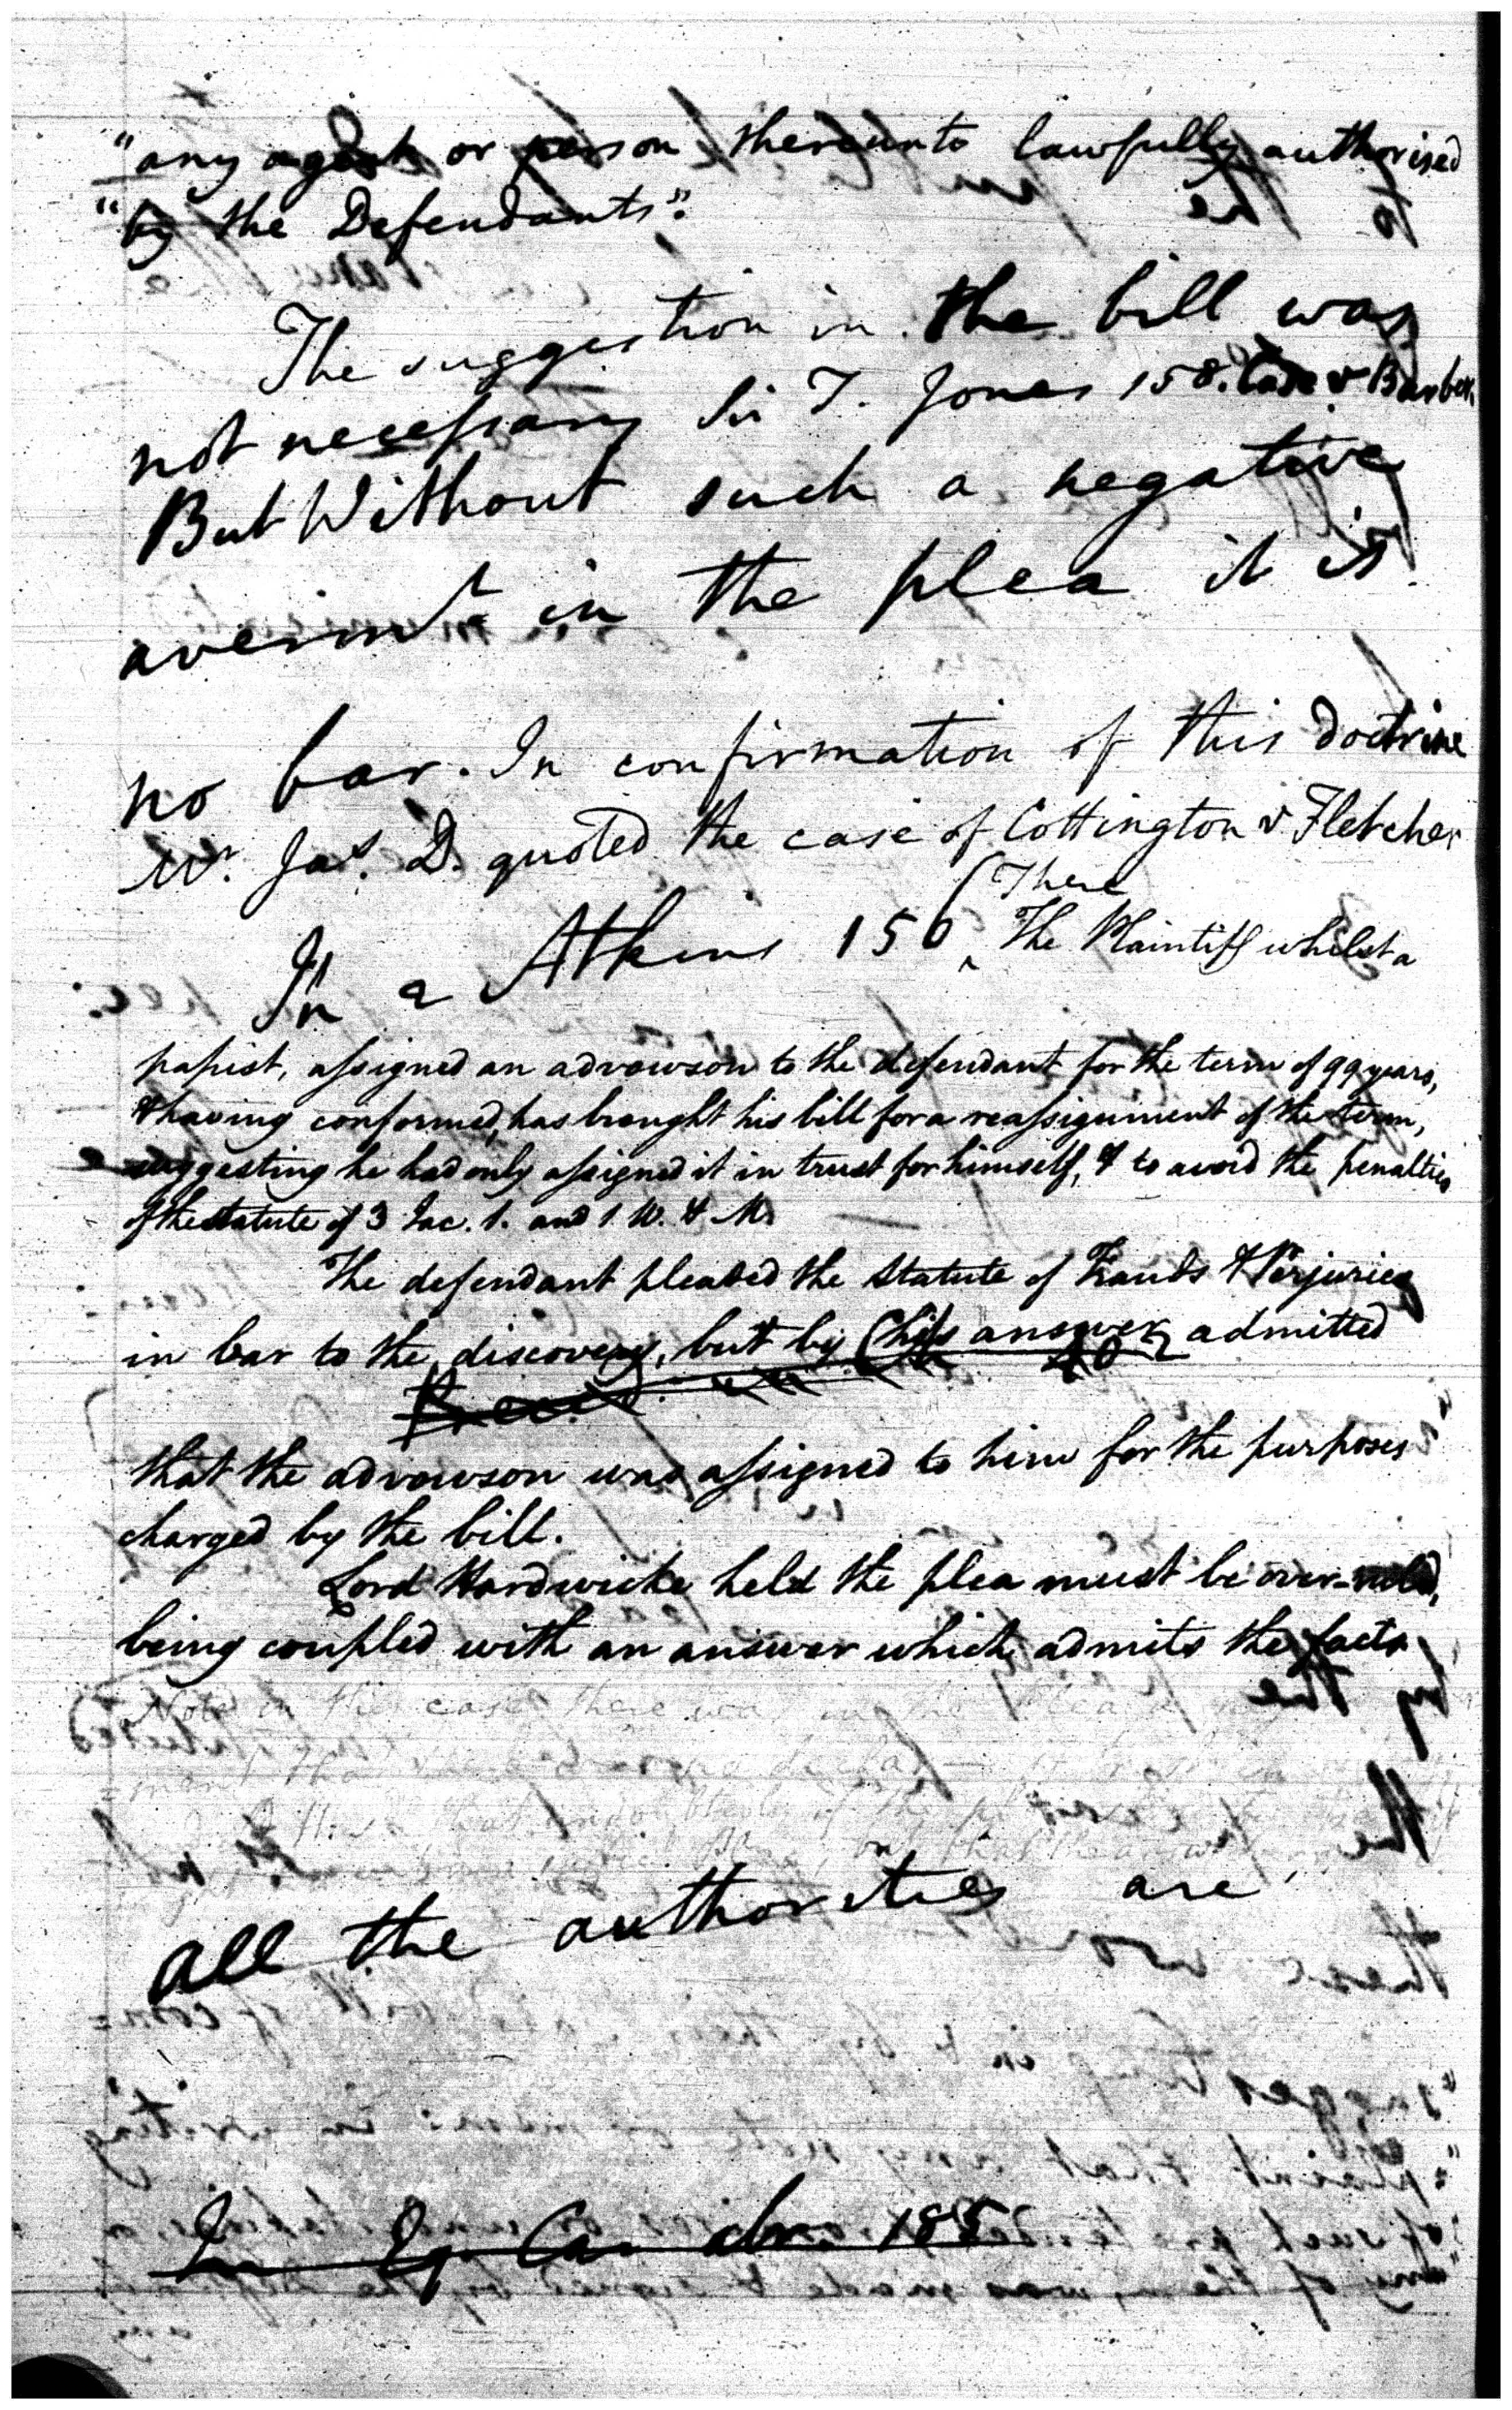 "any agent or person thereunto lawfully authorised
"by the Defendants".
The suggestion in the bill was
not necessary Sir T. Jones 158. Case v Barber.
But Without such a negative
averm.t in the plea it is
no bar. In confirmation of this doctrine
Mr. Jas. D. quoted the case of Cottington v Fletcher
There
In 2 Atkins 156 The Plaintiff whilst a
papist, assigned an advowson to the defendant for the term of 99 years,
& having conformed, has brought his bill for a reassignment of the term,
suggesting he had only assigned it in trust for himself, & to avoid the penalties
of the statute of 3 Jac. 1. and 1. W. & M.
The defendant pleaded the Statute of Frauds & Perjuries
in bar to the discovery, but by his answer admitted
that the advowson was assigned to him for the purposes
charged by the bill.
Lord Hardwicke held the plea must be over-ruled,
being coupled with an answer which admits the facts
Note in this case there was in the plea a
=ment that there
that the answer
all the authorities are
In Eq. Ca. abr. 185